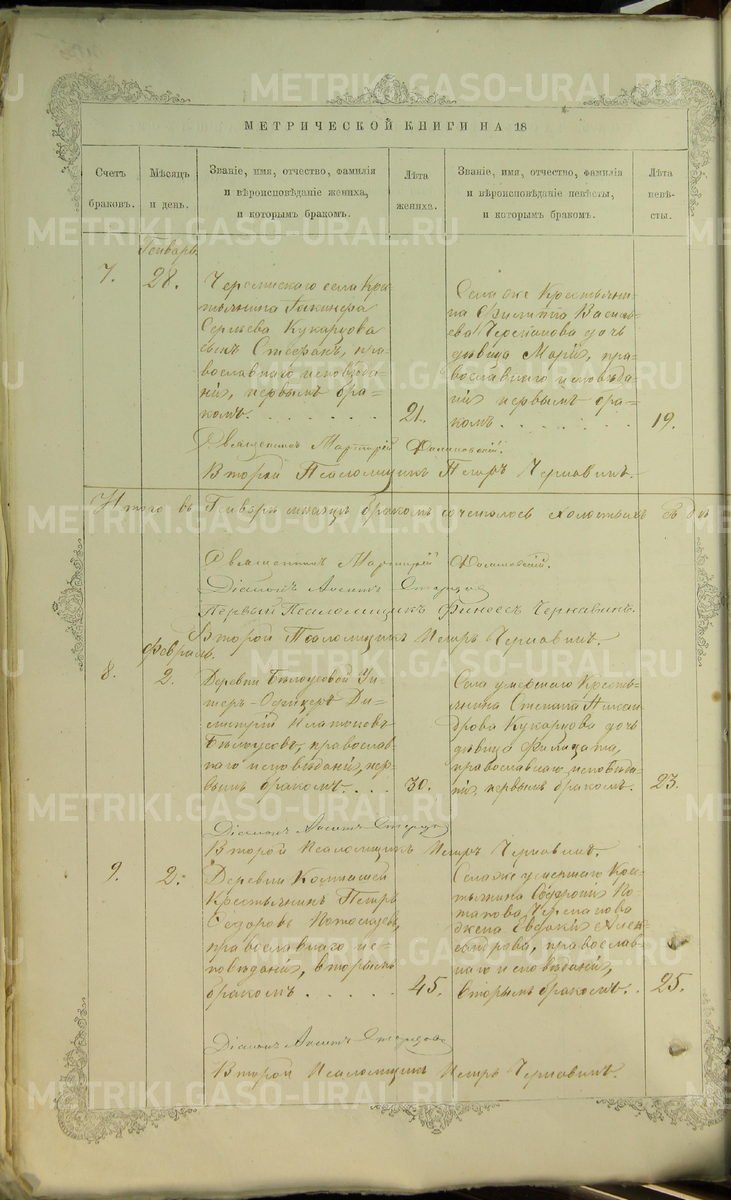 METRIKI.GASO-URAL.RU
МЕТРИЧЕСКОЙ КНИГИ НА 18
Счетъ браковъ.
Мѣсяцъ и день.
Званіе, имя, отчество, фамилія
и вѣроисповѣданіе жениха,
и которымъ бракомъ.
Лѣта жениха.
Званіе, имя, отчество, фамилія
и вѣроисповѣданіе невѣсты,
и которымъ бракомъ.
Лѣта невѣсты.
Генварь
7.
28.
Черемисскаго села Кре=
стьянина
Сергѣева Кукарцова
сынъ Стефанъ, пра=
вославнаго исповѣда=
нія, первымъ бра=
комъ.
21.
Села же Крестьяни=
на Филиппа Василь=
ева Черепанова дочь
дѣвица Марія, пра=
вославнаго исповѣда=
нія первымъ бра=
комъ.
19.
Священникъ
Второй Псаломщикъ Петръ Чернавинъ.
Итого въ Генварѣ мѣсяцѣ бракомъ сочеталось
Священникъ
Діаконъ
Первый Псаломщикъ Финеесъ Чернавинъ.
Второй Псаломщикъ Петръ Чернавинъ.
Февраль.
8.
2.
Деревни Бѣлоусовой Ун=
теръ-Офицеръ Ди=
митрій Платоновъ
Бѣлоусовъ, православ=
наго исповѣданія, пер=
вымъ бракомъ.
30.
Села умершаго Кресть=
янина Степана Алексан=
дрова Кукарцова дочь
дѣвица Филицата,
православнаго исповѣда=
нія, первымъ бракомъ.
23.
Діаконъ
Второй Псаломщикъ Петръ Чернавинъ.
9.
2.
Деревни
Крестьянинъ Петръ
Ѳедоровъ
православнаго ис=
повѣданія, вторымъ
бракомъ
45.
Села же умершаго Кре=
стьянина По=
тапова Черепанова
жена Евдокія Алек=
сандрова, православ=
наго исповѣданія,
вторымъ бракомъ.
25.
Діаконъ
Второй Псаломщикъ Петръ Чернавинъ.